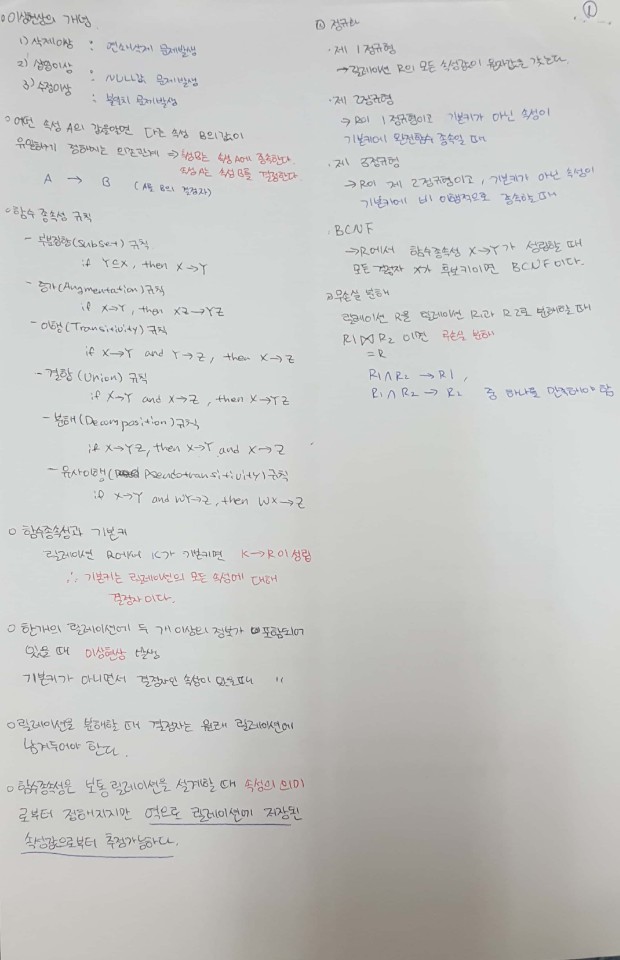 ○ 이상현상의 개념
1) 삭제이상 : 연쇄삭제 문제발생
2) 삽입이상 : NULL값 문제발생
3) 수정이상 : 불일치 문제발생
○ 어떤 속성 A의 값을 알면 다른 속성 B의 값이
유일하게 정해지는 의존관계 ⇒ 속성B는 속성A에 종속한다.
속성A는 속성B를 결정한다
A → B (A를 B의 결정자)
○ 함수 종속성 규칙
- 부분집합(Subset) 규칙
if Y⊆X, then X→Y
- 증가(Augmentation) 규칙
if X→Y, then XZ→YZ
- 이행(Transitivity) 규칙
if X→Y and Y→Z, then X→Z
- 결합(Union) 규칙
if X→Y and X→Z, then X→YZ
- 분해(Decomposition) 규칙
if X→YZ, then X→Y and X→Z
- 유사이행(Pseudotransitivity) 규칙
if X→Y and WY→Z, then WX→Z
○ 함수종속성과 기본키
릴레이션 R에서 K가 기본키면 K→R이 성립
∴ 기본키는 릴레이션의 모든 속성에 대해
결정자이다.
○ 한개의 릴레이션에 두 개 이상의 정보가 포함되어
있을 때 이상현상 발생
기본키가 아니면서 결정자인 속성이 있을때 〃
○ 릴레이션을 분해할 때 결정자는 원래 릴레이션에
남겨두어야 한다.
○ 함수종속성은 보통 릴레이션을 설계할 때 속성의 의미
로부터 정해지지만 역으로 릴레이션에 저장된
속성값으로부터 추정가능하다.
①
정규화
· 제 1정규형
→ 릴레이션 R의 모든 속성값이 원자값을 갖는다.
· 제 2정규형
→ R이 1정규형이고 기본키가 아닌 속성이
기본키에 완전함수 종속일 때
· 제 3정규형
→ R이 제 2정규형이고, 기본키가 아닌 속성이
기본키에 비 이행적으로 종속할 때
· BCNF
→ R에서 함수종속성 X→Y가 성립할 때
모든 결정자 X가 후보키이면 BCNF 이다.
무손실 분해
릴레이션 R을 릴레이션 R1과 R2로 분해할 때
R1⋈R2 이면 무손실 분해
= R
R1∩R2 → R1,
R1∩R2 → R2 중 하나를 만족해야 함